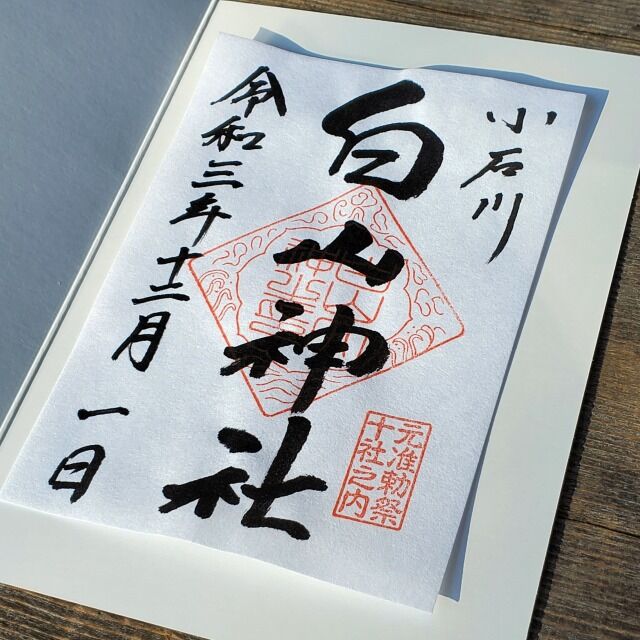 小石川
白山神社
元准勅祭
十社之内
令和三年十二月一日